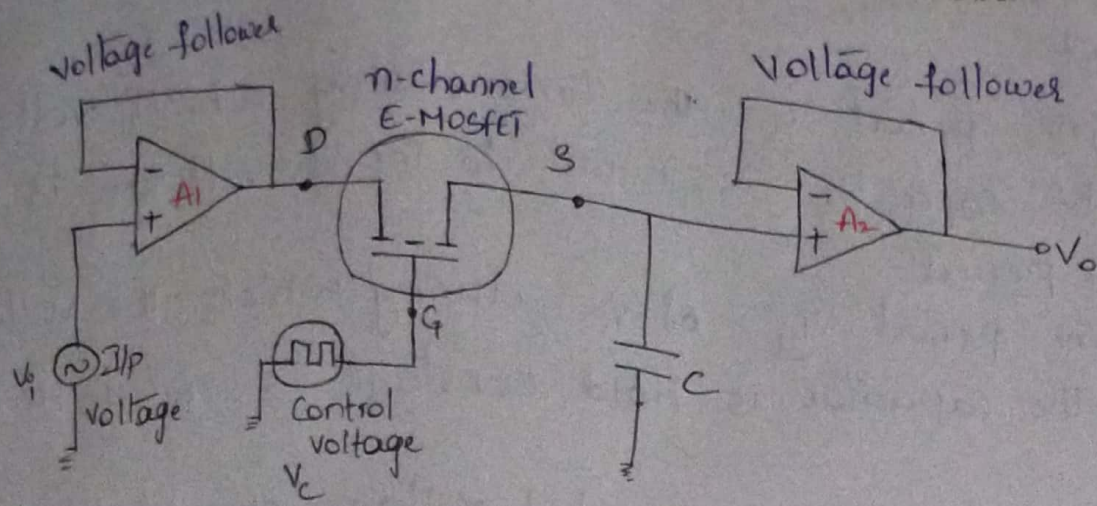 voltage follower
n-channel
E-MOSFET
Voltage follower
D
S
-
A1
+
-
A2
+
Vo
G
Vi
I/P
voltage
Control
voltage
Vc
C